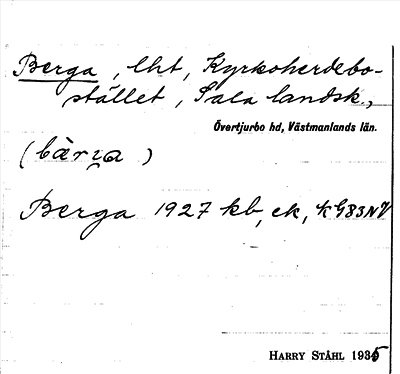 Berga, lht, Kyrkoherdebo-
stället, Sala landsk.,
Övertjurbo hd, Västmanlands län.
(bær i̯a)
Berga 1927 kb, ek, k G83NV
HARRY STÅHL 1935